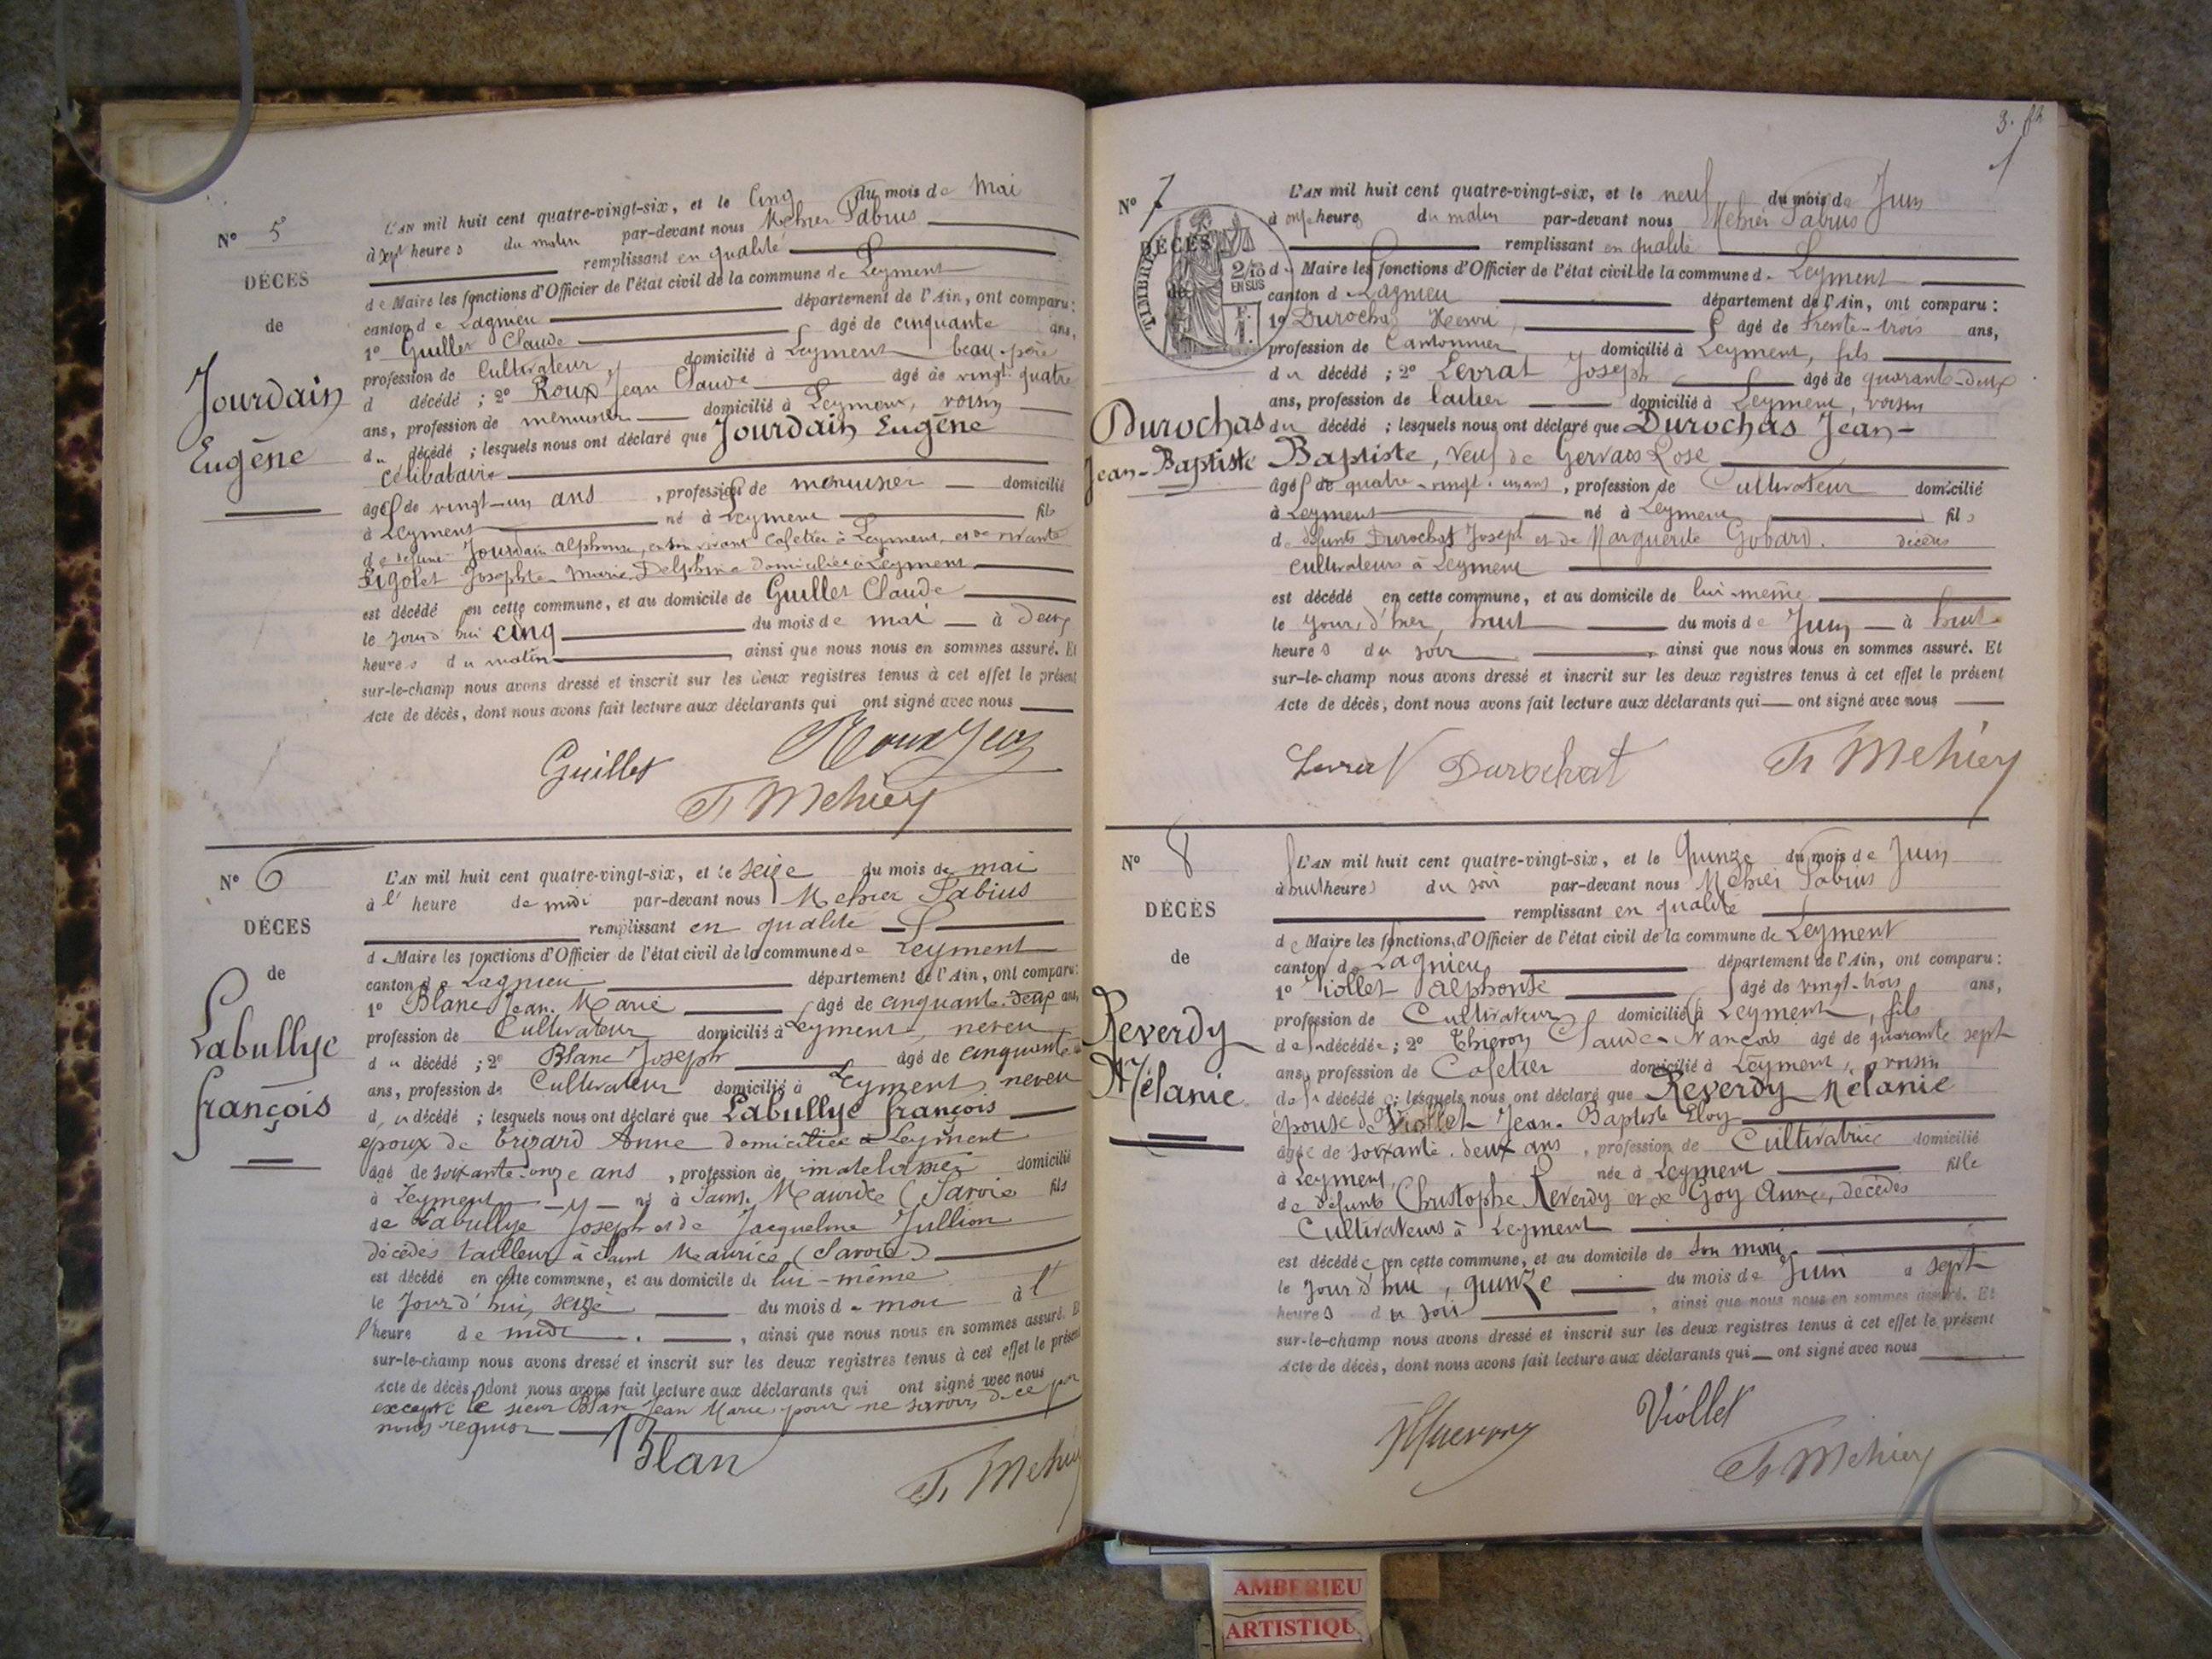 N° 5
DÉCÈS
de
Jourdain
Eugène
L'AN mil huit cent quatre-vingt-six, et le Cinq du mois de Mai
à sept heures du matin par-devant nous Mehier Fabius
remplissant en qualité
de Maire les fonctions d'Officier de l'état civil de la commune de Leyment
canton de Lagnieu département de l'Ain, ont comparu :
1° Guillet Claude âgé de cinquante ans,
profession de Cultivateur, domicilié à Leyment beau-père
d décédé ; 2° Roux Jean Claude âgé de vingt-quatre
ans, profession de menuisier domicilié à Leyment, voisin
du décédé ; lesquels nous ont déclaré que Jourdain Eugène
Célibataire
âgé de vingt-un ans , profession de menuisier domicilié
à Leyment né à Leyment fils
de défunt Jourdain alphonse, en son vivant Cafetier à Leyment, et de vivante
Rigolet Josephte Marie Delphine domiciliée à Leyment
est décédé en cette commune, et au domicile de Guillet Claude
le jourd'hui cinq du mois de mai à deux
heures du matin , ainsi que nous nous en sommes assuré. Et
sur-le-champ nous avons dressé et inscrit sur les deux registres tenus à cet effet le présent
Acte de décès, dont nous avons fait lecture aux déclarants qui ont signé avec nous
Guillet Roux Jean
F. Mehier
N° 6
DÉCÈS
de
Labullye
françois
L'AN mil huit cent quatre-vingt-six, et le seize du mois de mai
à l' heure de midi par-devant nous Mehier Fabius
remplissant en qualité
de Maire les fonctions d'Officier de l'état civil de la commune de Leyment
canton de Lagnieu département de l'Ain, ont comparu :
1° Blanc Jean-Marie âgé de cinquante-deux ans,
profession de Cultivateur domicilié à Leyment, neveu
du décédé ; 2° Blanc Joseph âgé de cinquante
ans, profession de Cultivateur domicilié à Leyment, neveu
du décédé ; lesquels nous ont déclaré que Labullye françois
époux de Trizard Anne domiciliée à Leyment
âgé de soixante-onze ans , profession de matelassier domicilié
à Leyment né à Saint-Maurice (Savoie fils
de Labullye Joseph et de Jacqueline Jullion
décédés tailleur à Saint Maurice (Savoie)
est décédé en cette commune, et au domicile de lui-même
le Jourd'hui, seize du mois de mai à l'
heure de midi , ainsi que nous nous en sommes assuré. Et
sur-le-champ nous avons dressé et inscrit sur les deux registres tenus à cet effet le présent
Acte de décès, dont nous avons fait lecture aux déclarants qui ont signé avec nous
excepté le sieur Blanc Jean Marie pour ne savoir, de ce par
nous requis
Blan
F. Mehier
3.
N° 7
DÉCÈS
de
TIMBRE
2/10
EN SUS
Durochas
Jean-Baptiste
L'AN mil huit cent quatre-vingt-six, et le neuf du mois de Juin
à onze heures du matin par-devant nous Mehier Fabius
remplissant en qualité
de Maire les fonctions d'Officier de l'état civil de la commune de Leyment
canton de Lagnieu département de l'Ain, ont comparu :
1° Durochas Henri, âgé de trente-trois ans,
profession de Cantonnier domicilié à Leyment, fils
du décédé ; 2° Levrat Joseph âgé de quarante-deux
ans, profession de laitier domicilié à Leyment, voisin
du décédé ; lesquels nous ont déclaré que Durochas Jean-
Baptiste, veuf de Gervais Rose
âgé de quatre-vingt-un ans , profession de Cultivateur domicilié
à Leyment né à Leyment fils
de défunts Durochas Joseph et de Marguerite Gobard. décédés
cultivateurs à Leyment
est décédé en cette commune, et au domicile de lui-même
le jour d'hier, huit du mois de Juin à huit
heures du soir , ainsi que nous nous en sommes assuré. Et
sur-le-champ nous avons dressé et inscrit sur les deux registres tenus à cet effet le présent
Acte de décès, dont nous avons fait lecture aux déclarants qui ont signé avec nous
Levrat Durochat F. Mehier
N° 8
DÉCÈS
de
Reverdy
Mélanie
L'AN mil huit cent quatre-vingt-six, et le Quinze du mois de Juin
à huit heures du soir par-devant nous Mehier Fabius
remplissant en qualité
de Maire les fonctions d'Officier de l'état civil de la commune de Leyment
canton de Lagnieu département de l'Ain, ont comparu :
1° Viollet Alphonse âgé de vingt-trois ans,
profession de Cultivateur domicilié à Leyment, fils
de la décédée ; 2° Thieroz Claude-François âgé de quarante sept
ans, profession de Cafetier domicilié à Leyment, voisin
de la décédée ; lesquels nous ont déclaré que Reverdy Mélanie
épouse de Viollet Jean-Baptiste Eloy
âgée de soixante-deux ans , profession de Cultivatrice domicilié
à Leyment, née à Leyment fille
de défunts Christophe Reverdy et de Goy Anne, décédés
Cultivateurs à Leyment
est décédée en cette commune, et au domicile de son mari
le Jourd'hui, quinze du mois de Juin à sept
heures du soir , ainsi que nous nous en sommes assuré. Et
sur-le-champ nous avons dressé et inscrit sur les deux registres tenus à cet effet le présent
Acte de décès, dont nous avons fait lecture aux déclarants qui ont signé avec nous
Viollet
F. Mehier
AMBERIEU
ARTISTIQU